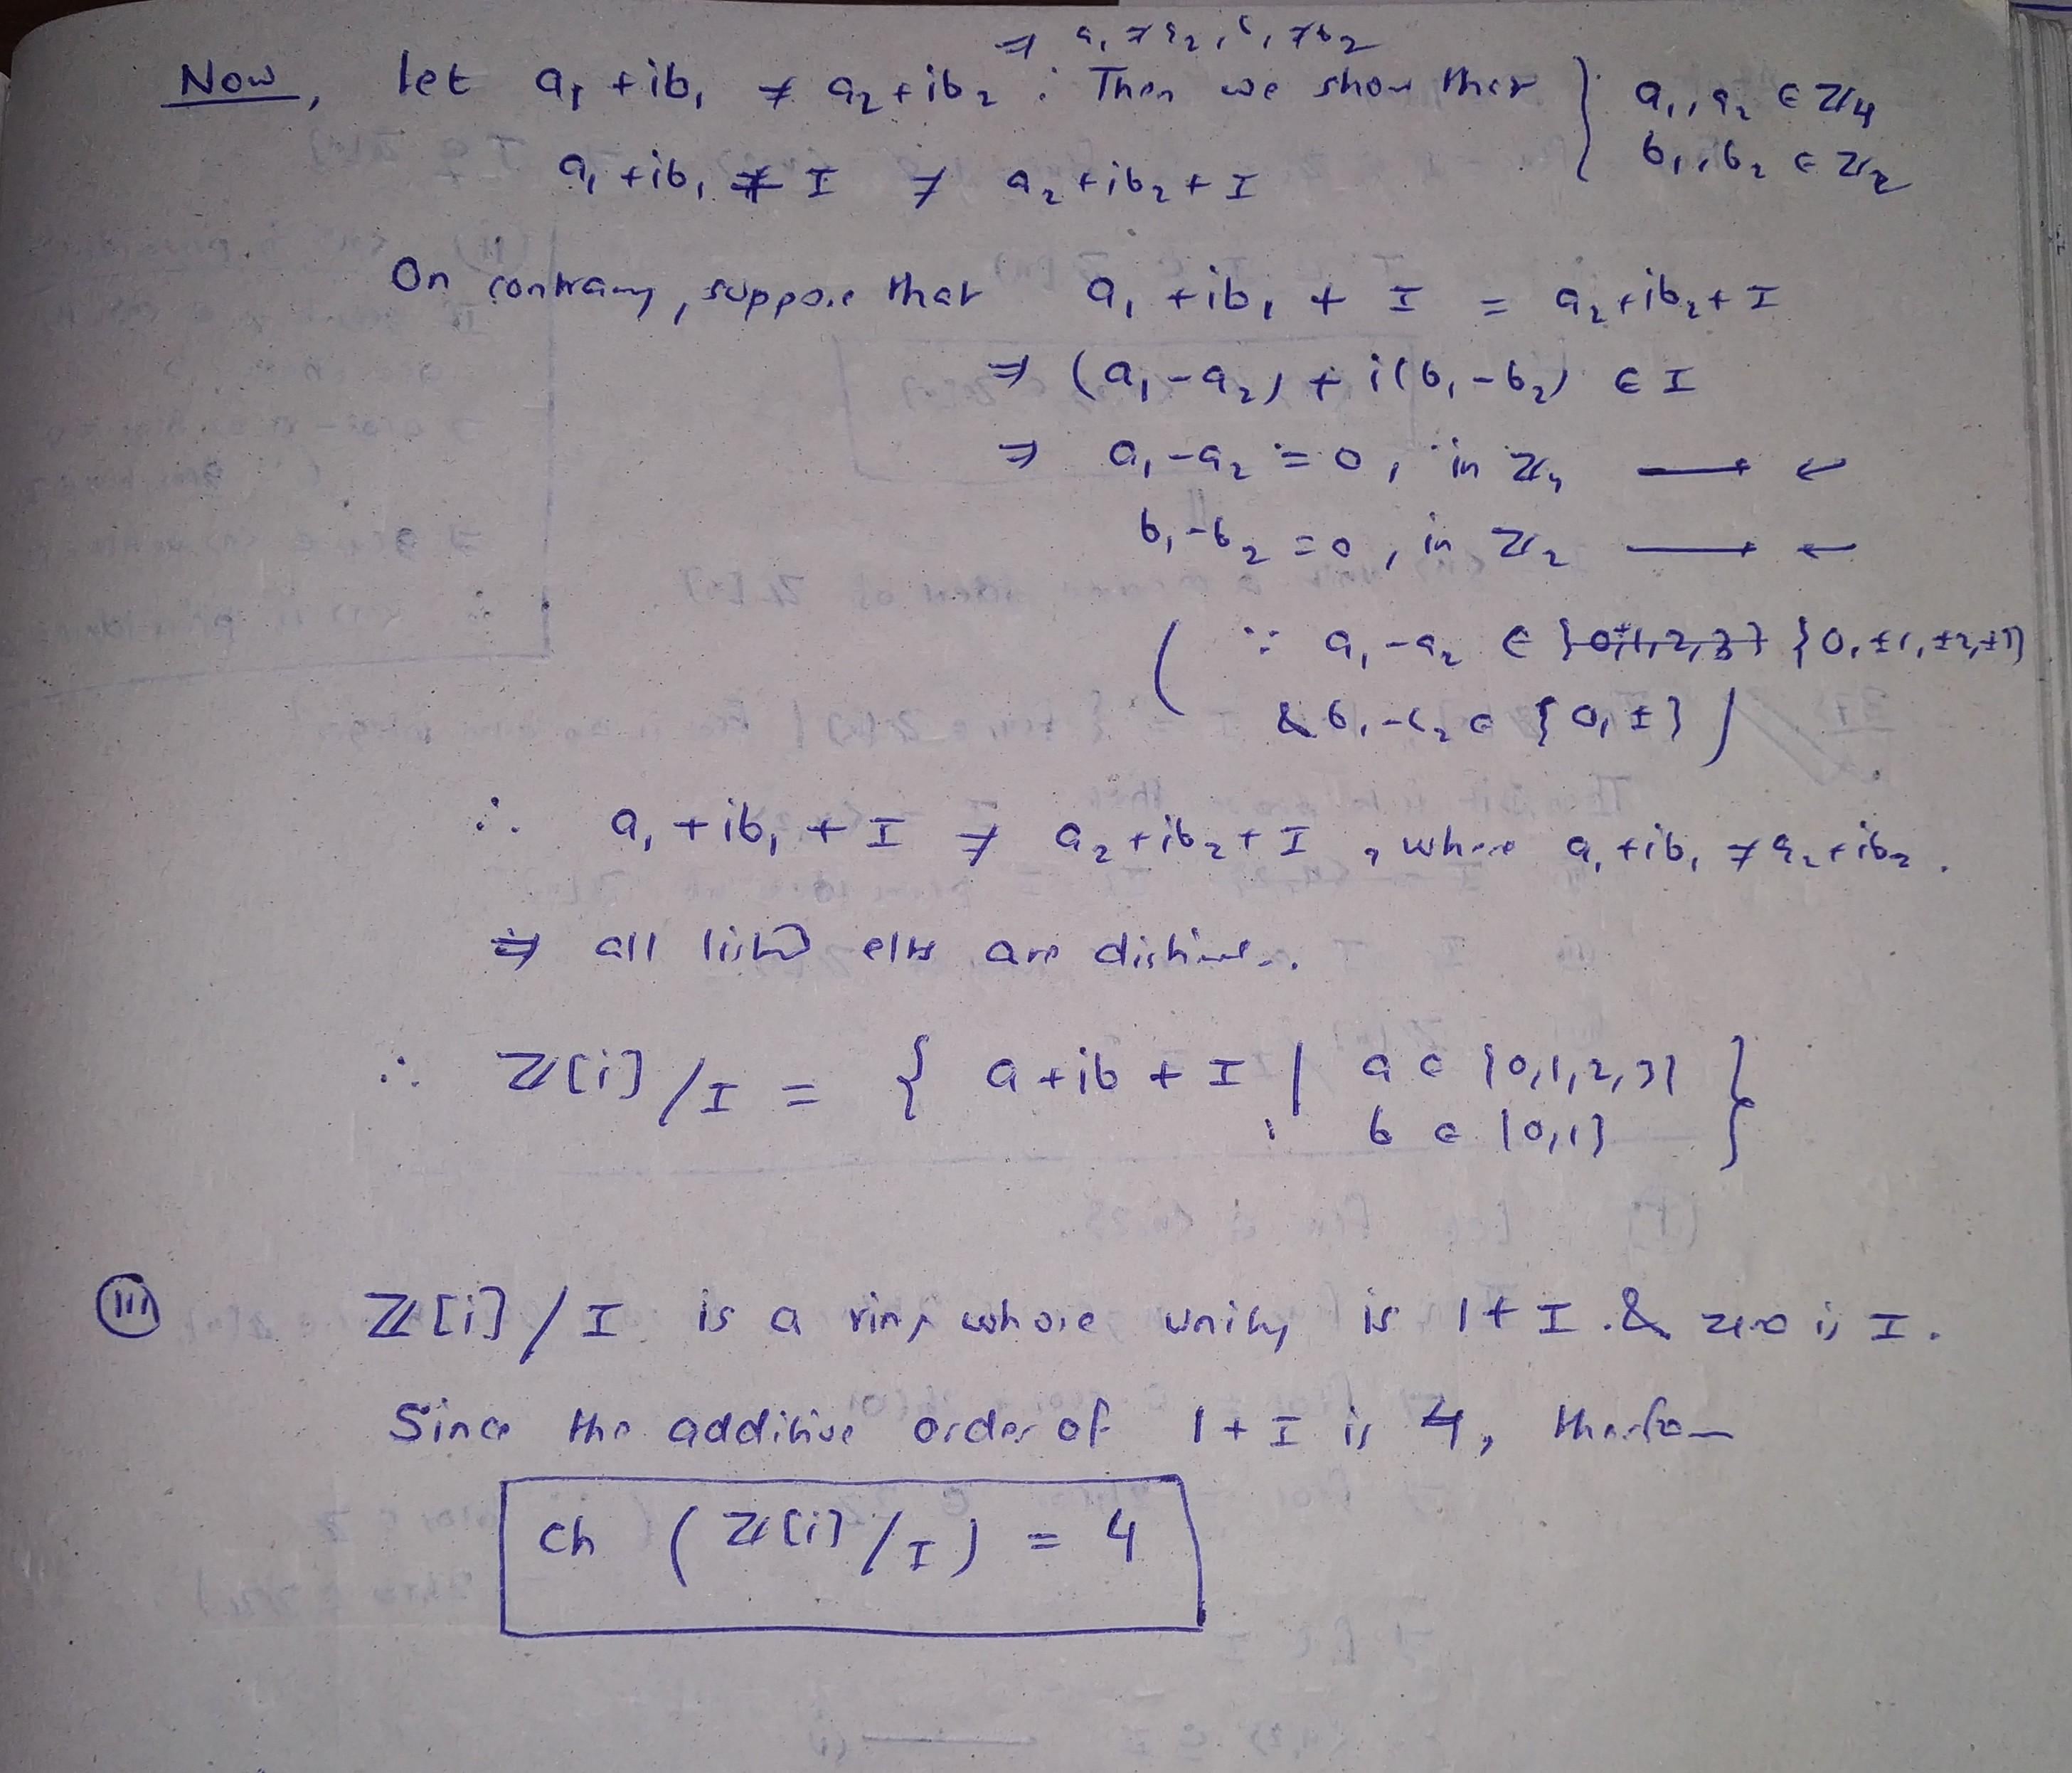 ⇒ a₁ ≠ a₂, b₁ ≠ b₂
Now, let a₁ + ib₁ ≠ a₂ + ib₂. Then we show that } a₁, a₂ ∈ ℤ₄
a₁ + ib₁ + I ≠ a₂ + ib₂ + I } b₁, b₂ ∈ ℤ₂
On contrary, suppose that a₁ + ib₁ + I = a₂ + ib₂ + I
⇒ (a₁ - a₂) + i(b₁ - b₂) ∈ I
⇒ a₁ - a₂ = 0, in ℤ₄ → ←
b₁ - b₂ = 0, in ℤ₂ → ←
( ∵ a₁ - a₂ ∈ {0, ±1, ±2, ±3}
& b₁ - b₂ ∈ {0, ±} )
∴ a₁ + ib₁ + I ≠ a₂ + ib₂ + I, where a₁ + ib₁ ≠ a₂ + ib₂.
⇒ all listed elts are distinct.
∴ ℤ[i]/I = { a + ib + I | a ∈ {0,1,2,3}
b ∈ {0,1} }
(iii) ℤ[i]/I is a ring whose unity is 1 + I. & zero is I.
Since the additive order of 1 + I is 4, therefore
ch (ℤ[i]/I) = 4